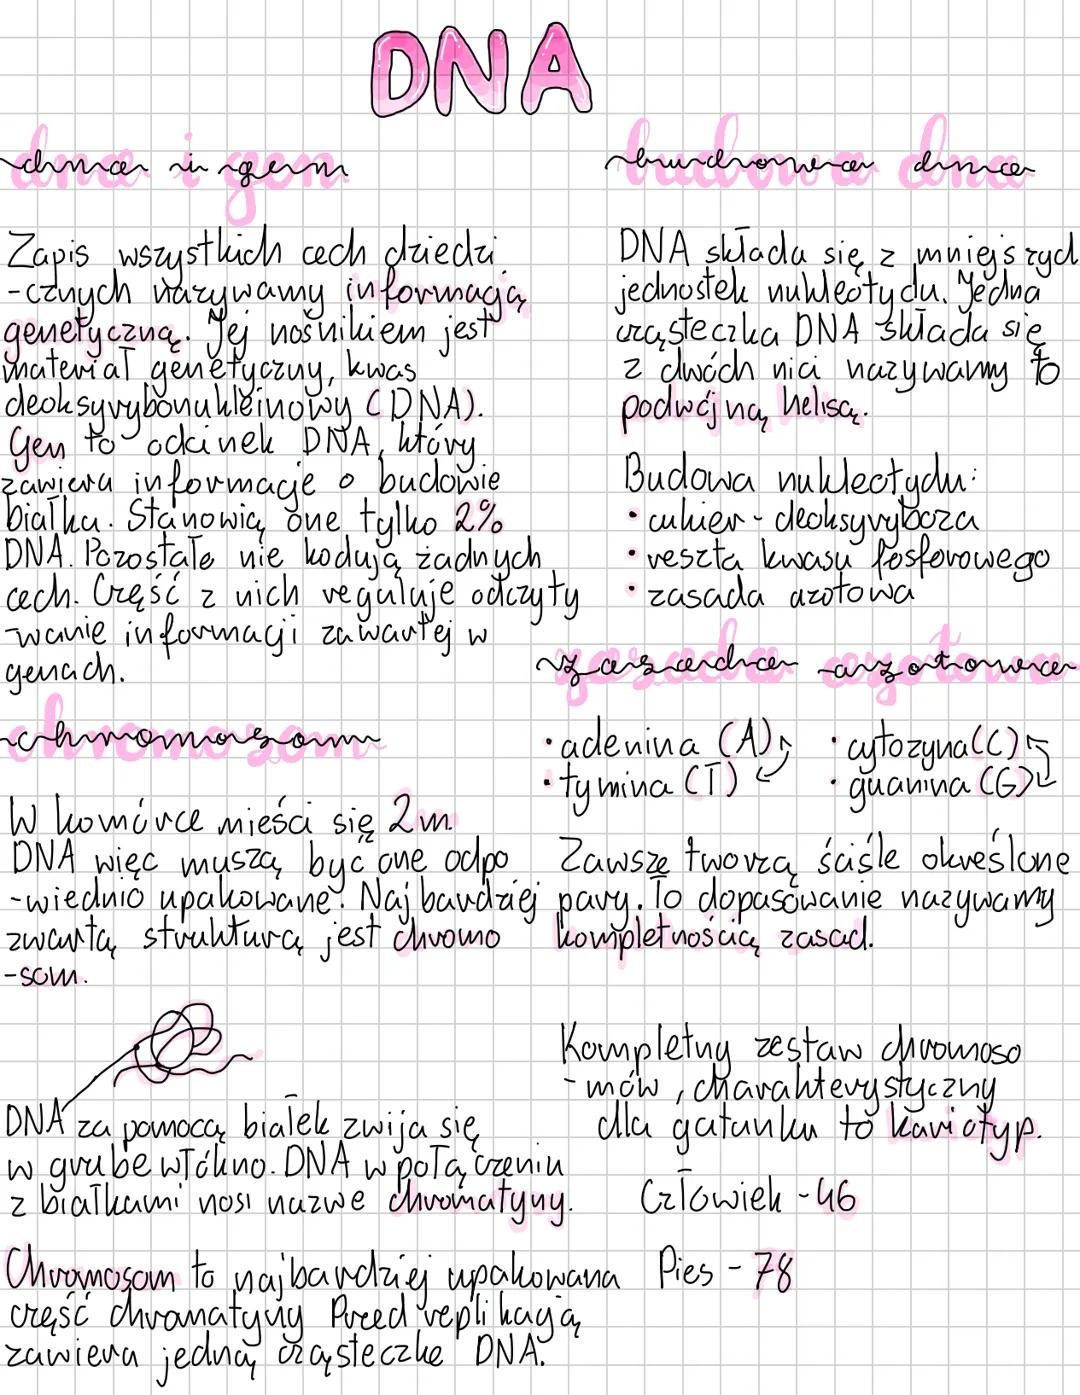 DNA
dna i gen
Zapis wszystkich cech dziedzi
-cznych nazywamy informacją
genetyczną. Jej nośnikiem jest
materiał genetyczny, kwas
deoksyrybonukleinowy (DNA).
Gen to odcinek DNA, który
zawiera informacje o budowie
białka. Stanowią one tylko 2%
DNA. Pozostałe nie kodują żadnych
cech. Część z nich reguluje odczyty
-wanie informacji zawartej w
genach.
chromosom
W komórce mieści się 2m
DNA więc muszą być one odpo
-wiednio upakowane. Najbardziej
zwartą strukturą jest chromo
-som.
DNA za pomocą białek zwija się
w grube włókno. DNA w połączeniu
z białkami nosi nazwe chromatyny.
Chromosom to najbardziej upakowana
część chromatyny Przed replikacją
zawiera jedną cząsteczke DNA.
budowa dna
DNA składa się z mniejszych
jednostek nukleotydu. Jedna
cząsteczka DNA składa się
z dwóch nici nazywamy to
podwójną helisą.
Budowa nukleotydu:
• cukier - deoksyryboza
• reszta kwasu fosforowego
• zasada azotowa
zasada azotowa
• adenina (A) • cytozyna (C)
• tymina (T) • guanina (G)
Zawsze tworzą ściśle określone
pary. To dopasowanie nazywamy
kompletnością zasad.
Kompletny zestaw chromoso
-mów, charakterystyczny
dla gatunku to kariotyp.
Człowiek - 46
Pies - 78